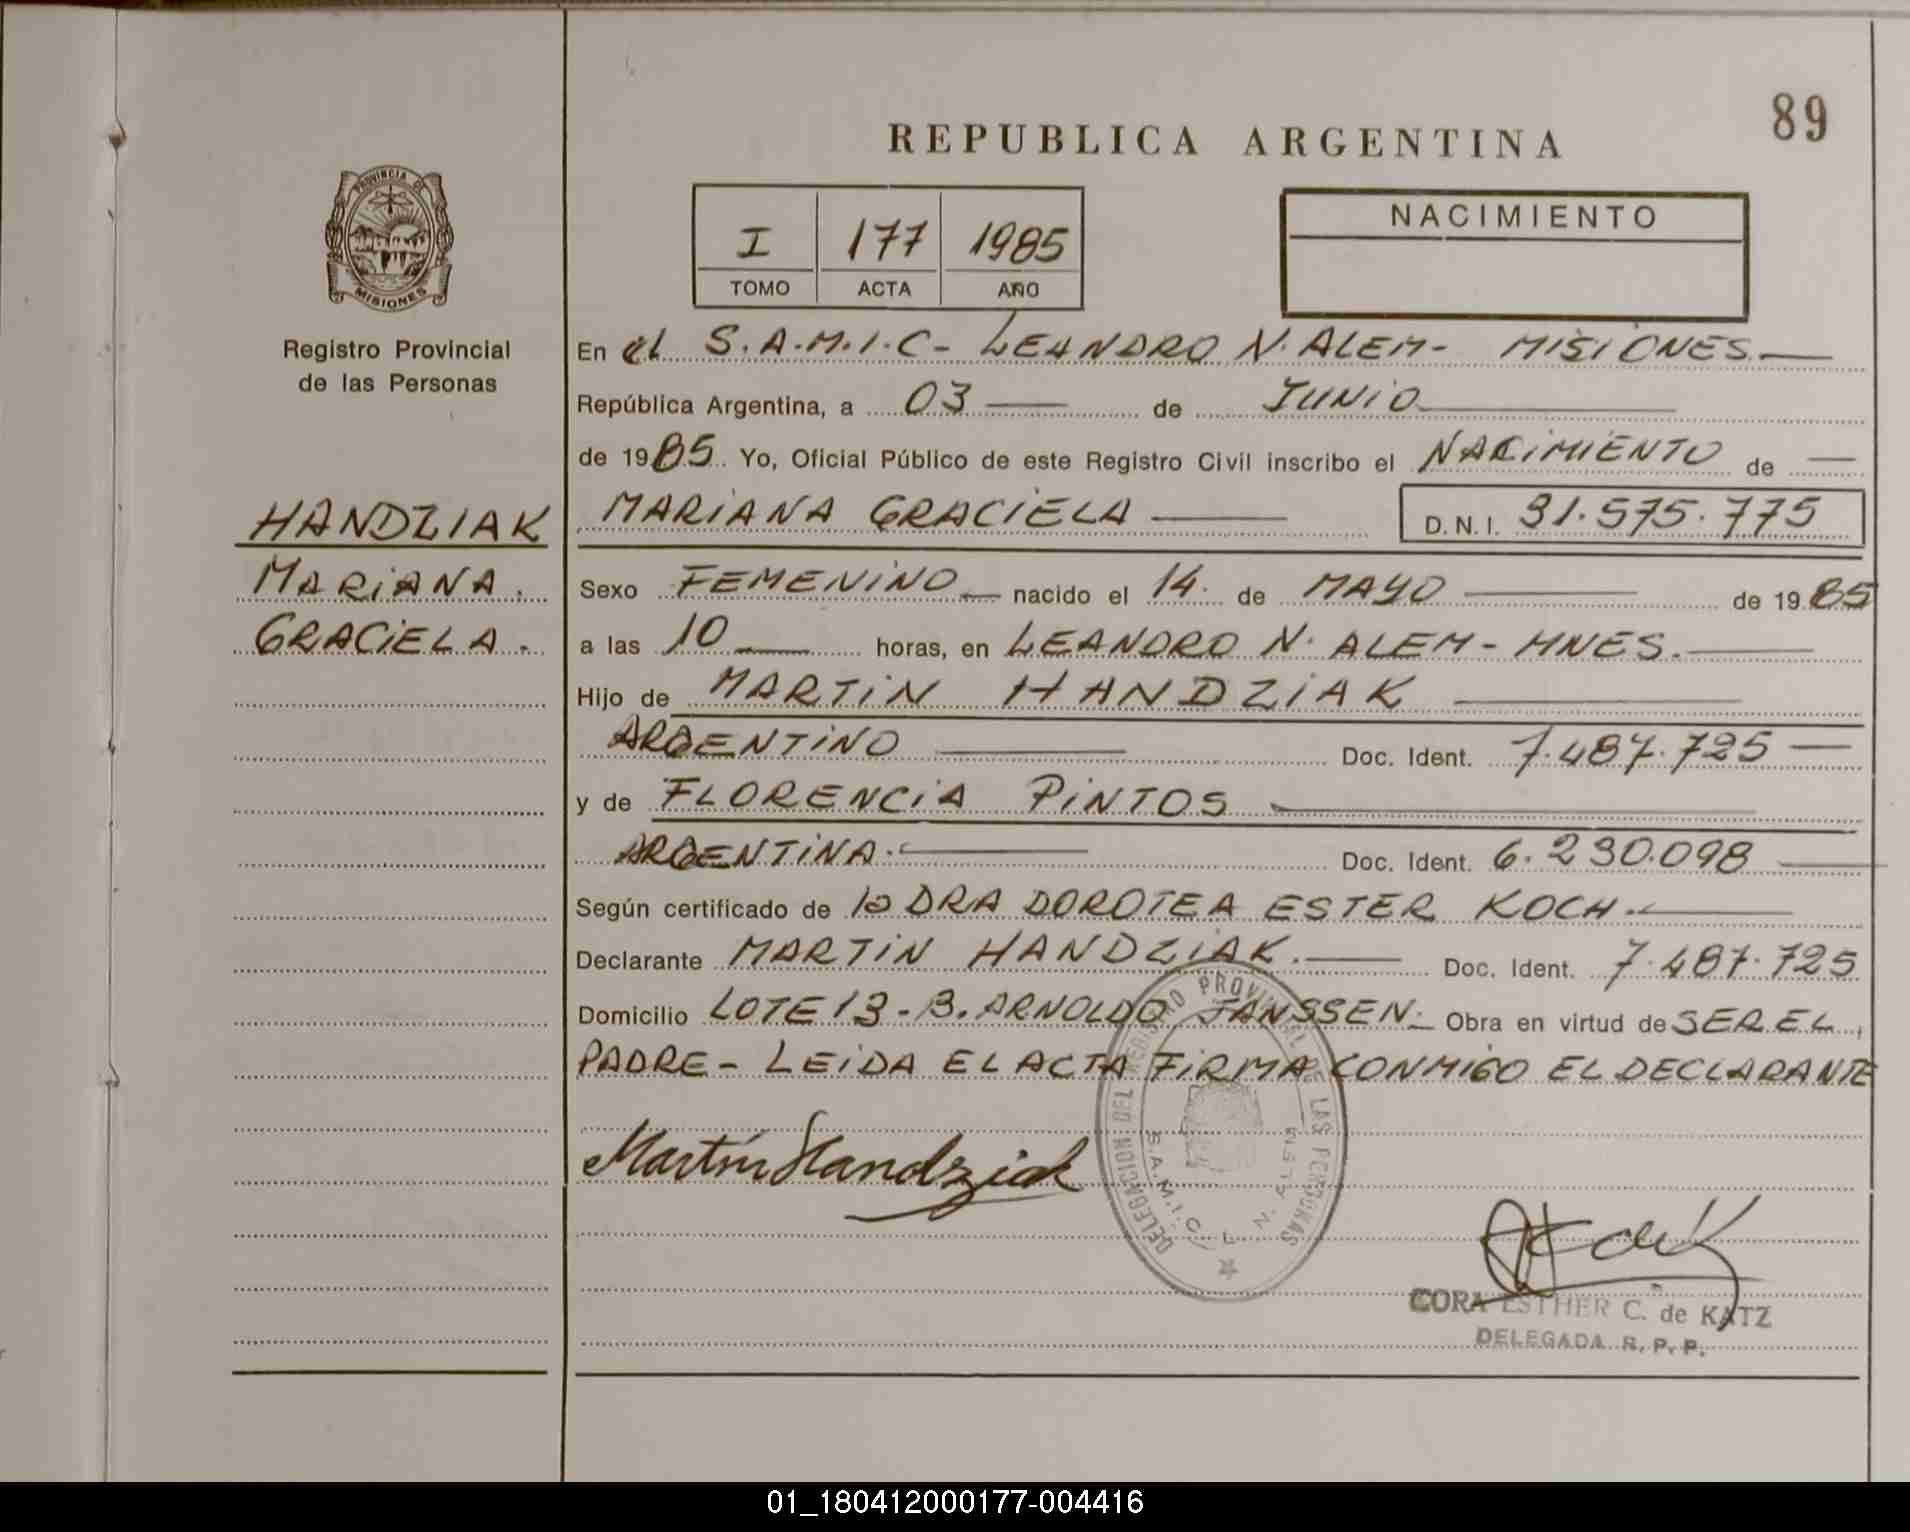 89
REPUBLICA ARGENTINA
PROVINCIA DE
MISIONES
Registro Provincial
de las Personas
I 177 1985
TOMO ACTA AÑO
NACIMIENTO
En el S.A.M.I.C- LEANDRO N. ALEM- MISIONES
República Argentina, a 03 de JUNIO
de 1985 Yo, Oficial Público de este Registro Civil inscribo el NACIMIENTO de
HANDZIAK
MARIANA GRACIELA D.N.I. 31.575.775
MARIANA.
GRACIELA.
Sexo FEMENINO nacido el 14. de MAYO de 1985
a las 10 horas, en LEANDRO N. ALEM - MNES.
Hijo de MARTIN HANDZIAK
ARGENTINO Doc. Ident. 7.487.725
y de FLORENCIA PINTOS
ARGENTINA. Doc. Ident. 6.230.098
Según certificado de la DRA DOROTEA ESTER KOCH.
Declarante MARTIN HANDZIAK. Doc. Ident. 7.487.725
Domicilio LOTE 13 - B. ARNOLDO JANSSEN. Obra en virtud de SER EL
PADRE - LEIDA EL ACTA FIRMA CONMIGO EL DECLARANTE
Martín Handziak
DELEGACION DEL REGISTRO PROVINCIAL DE LAS PERSONAS
S.A.M.I.C. L. N. ALEM
CORA ESTHER C. de KATZ
DELEGADA R. P. P.
01_180412000177-004416